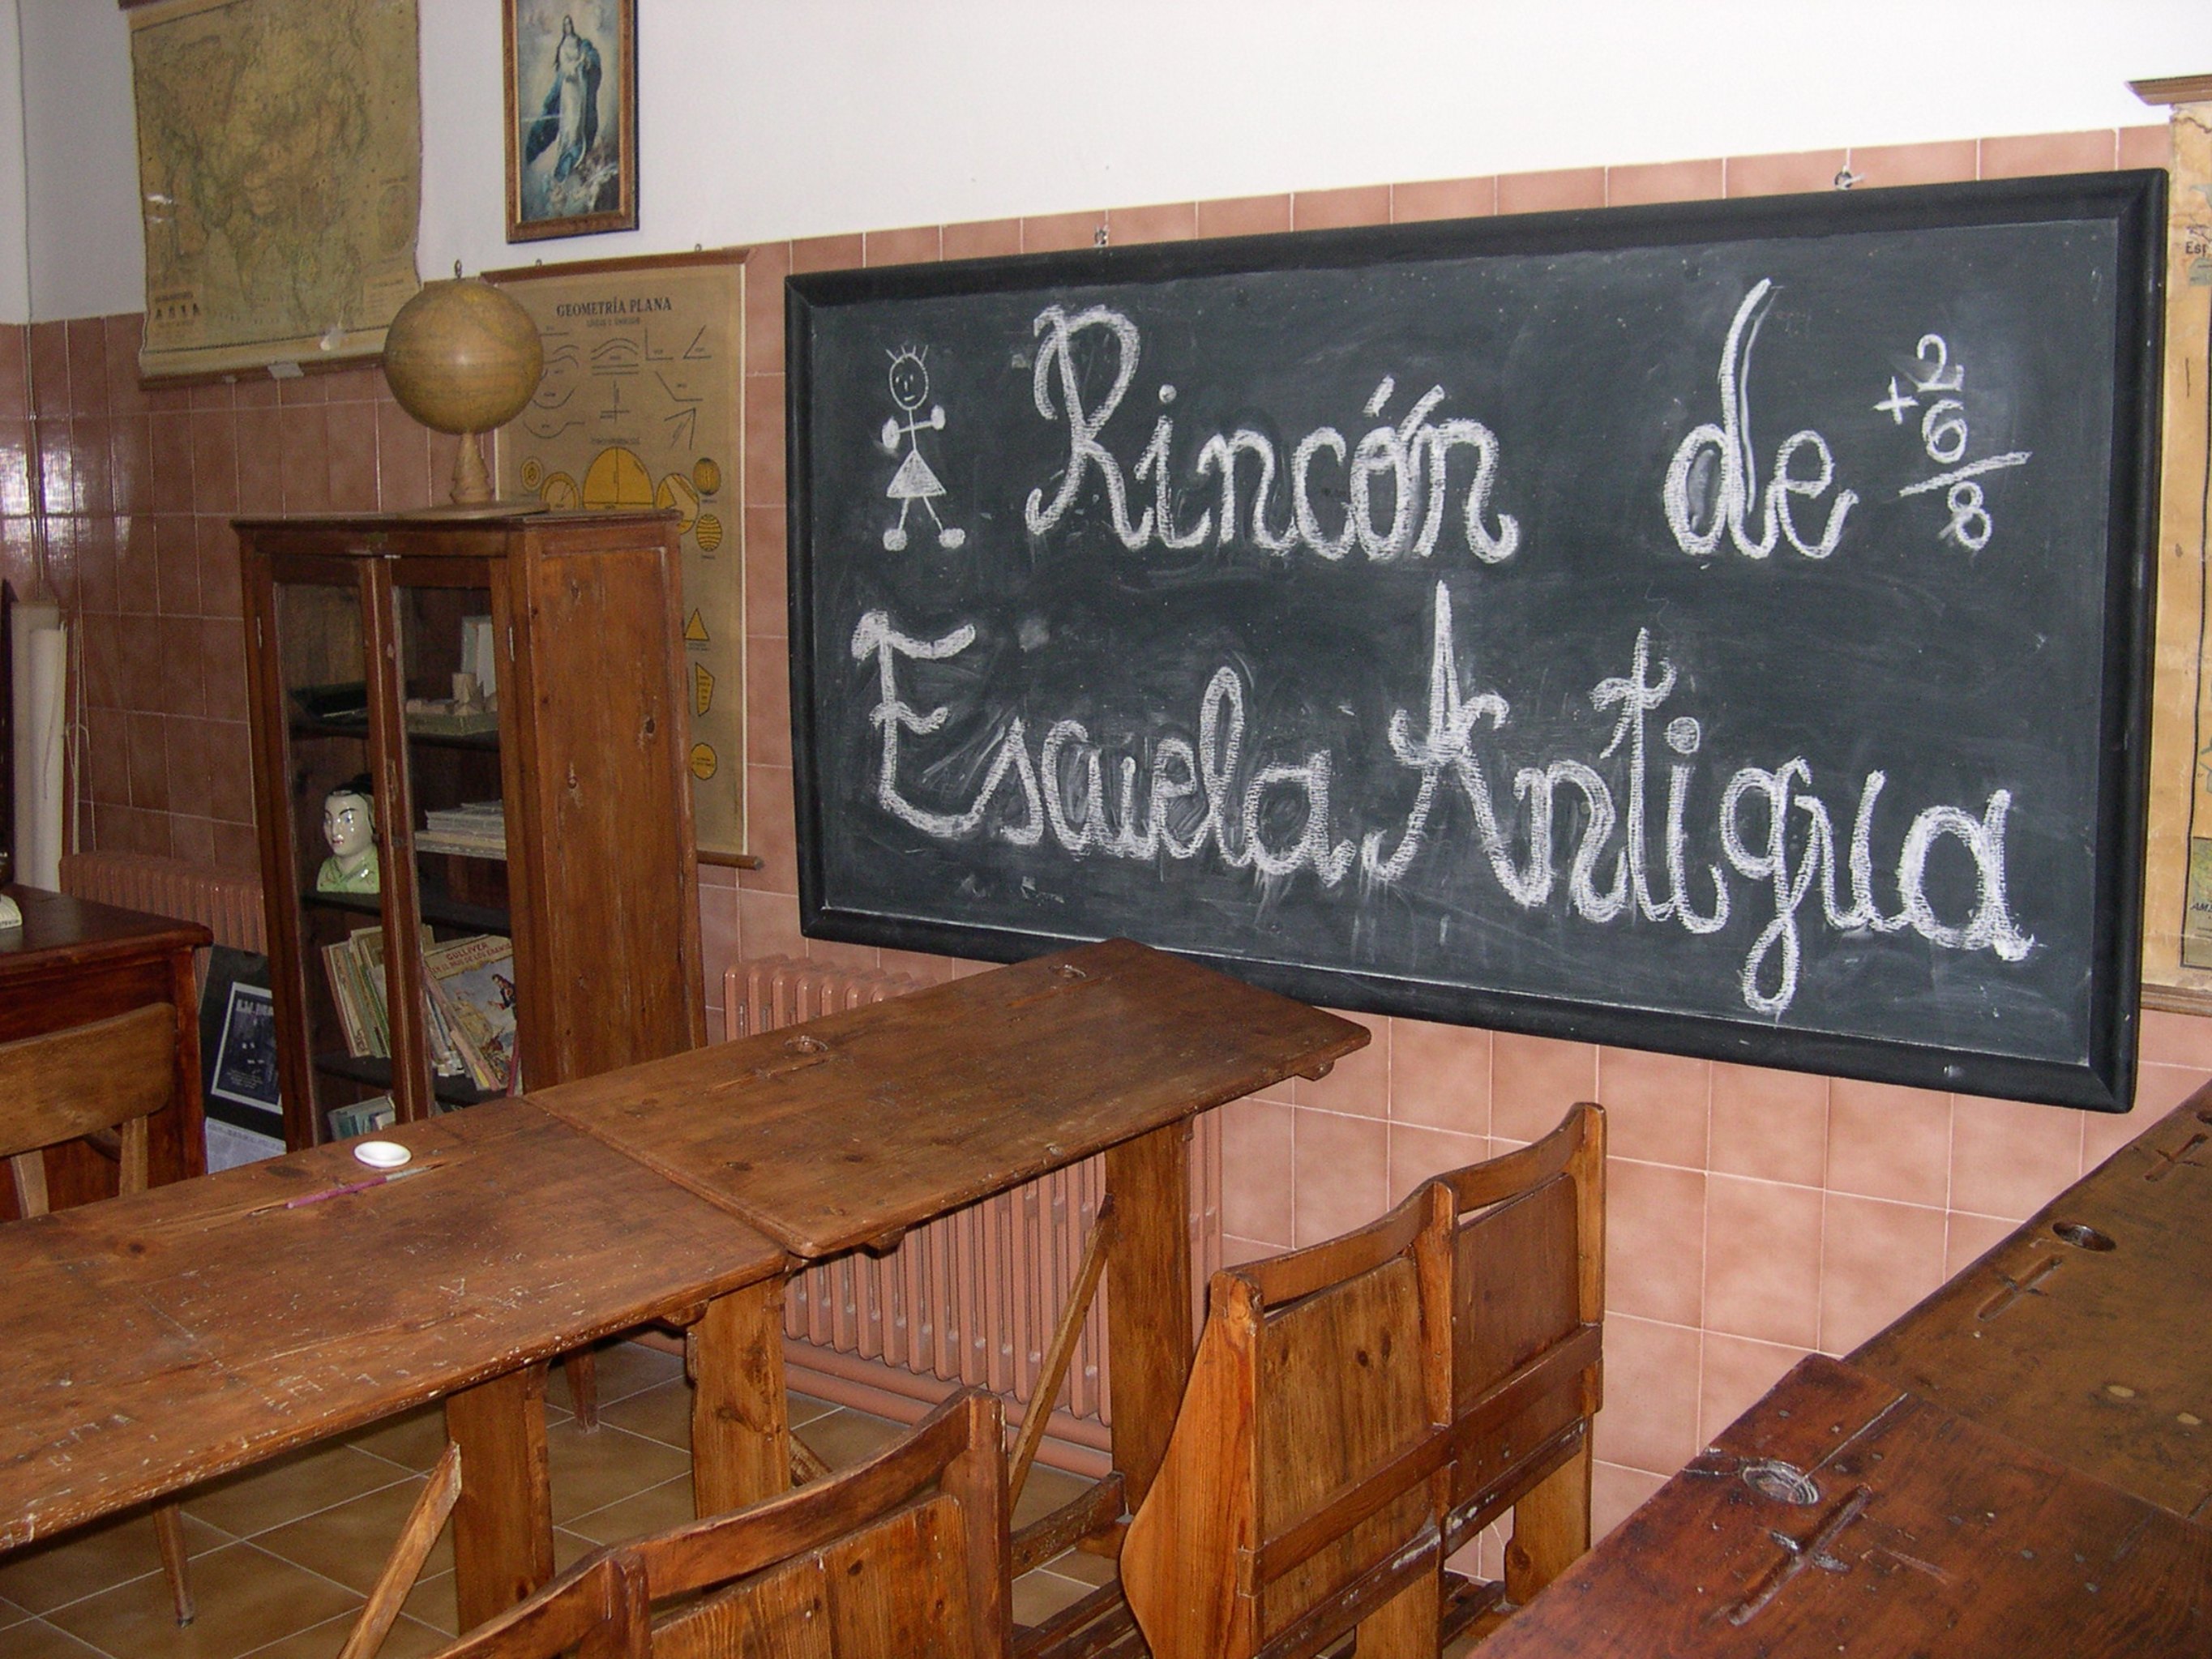 ASIA
GEOMETRÍA PLANA
LÍNEAS Y ÁNGULOS
Rincón de
2
+ 6
8
Escuela Antigua
GULLIVER
EN EL PAIS DE LOS ENANOS
Esp